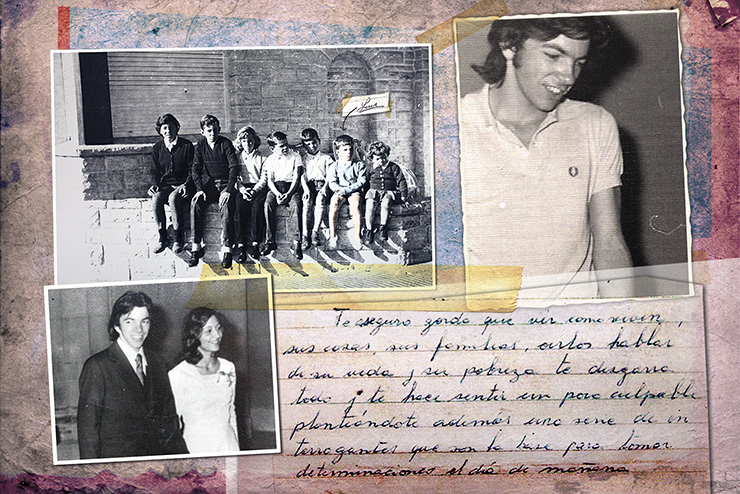 Te aseguro gorda que ver como viven,
sus cosas, sus familias, oirlos hablar
de su vida y su pobreza te desgarra
todo y te hace sentir un poco culpable
planteándote además una serie de in
terrogantes que son la base para tomar
determinaciones el día de mañana